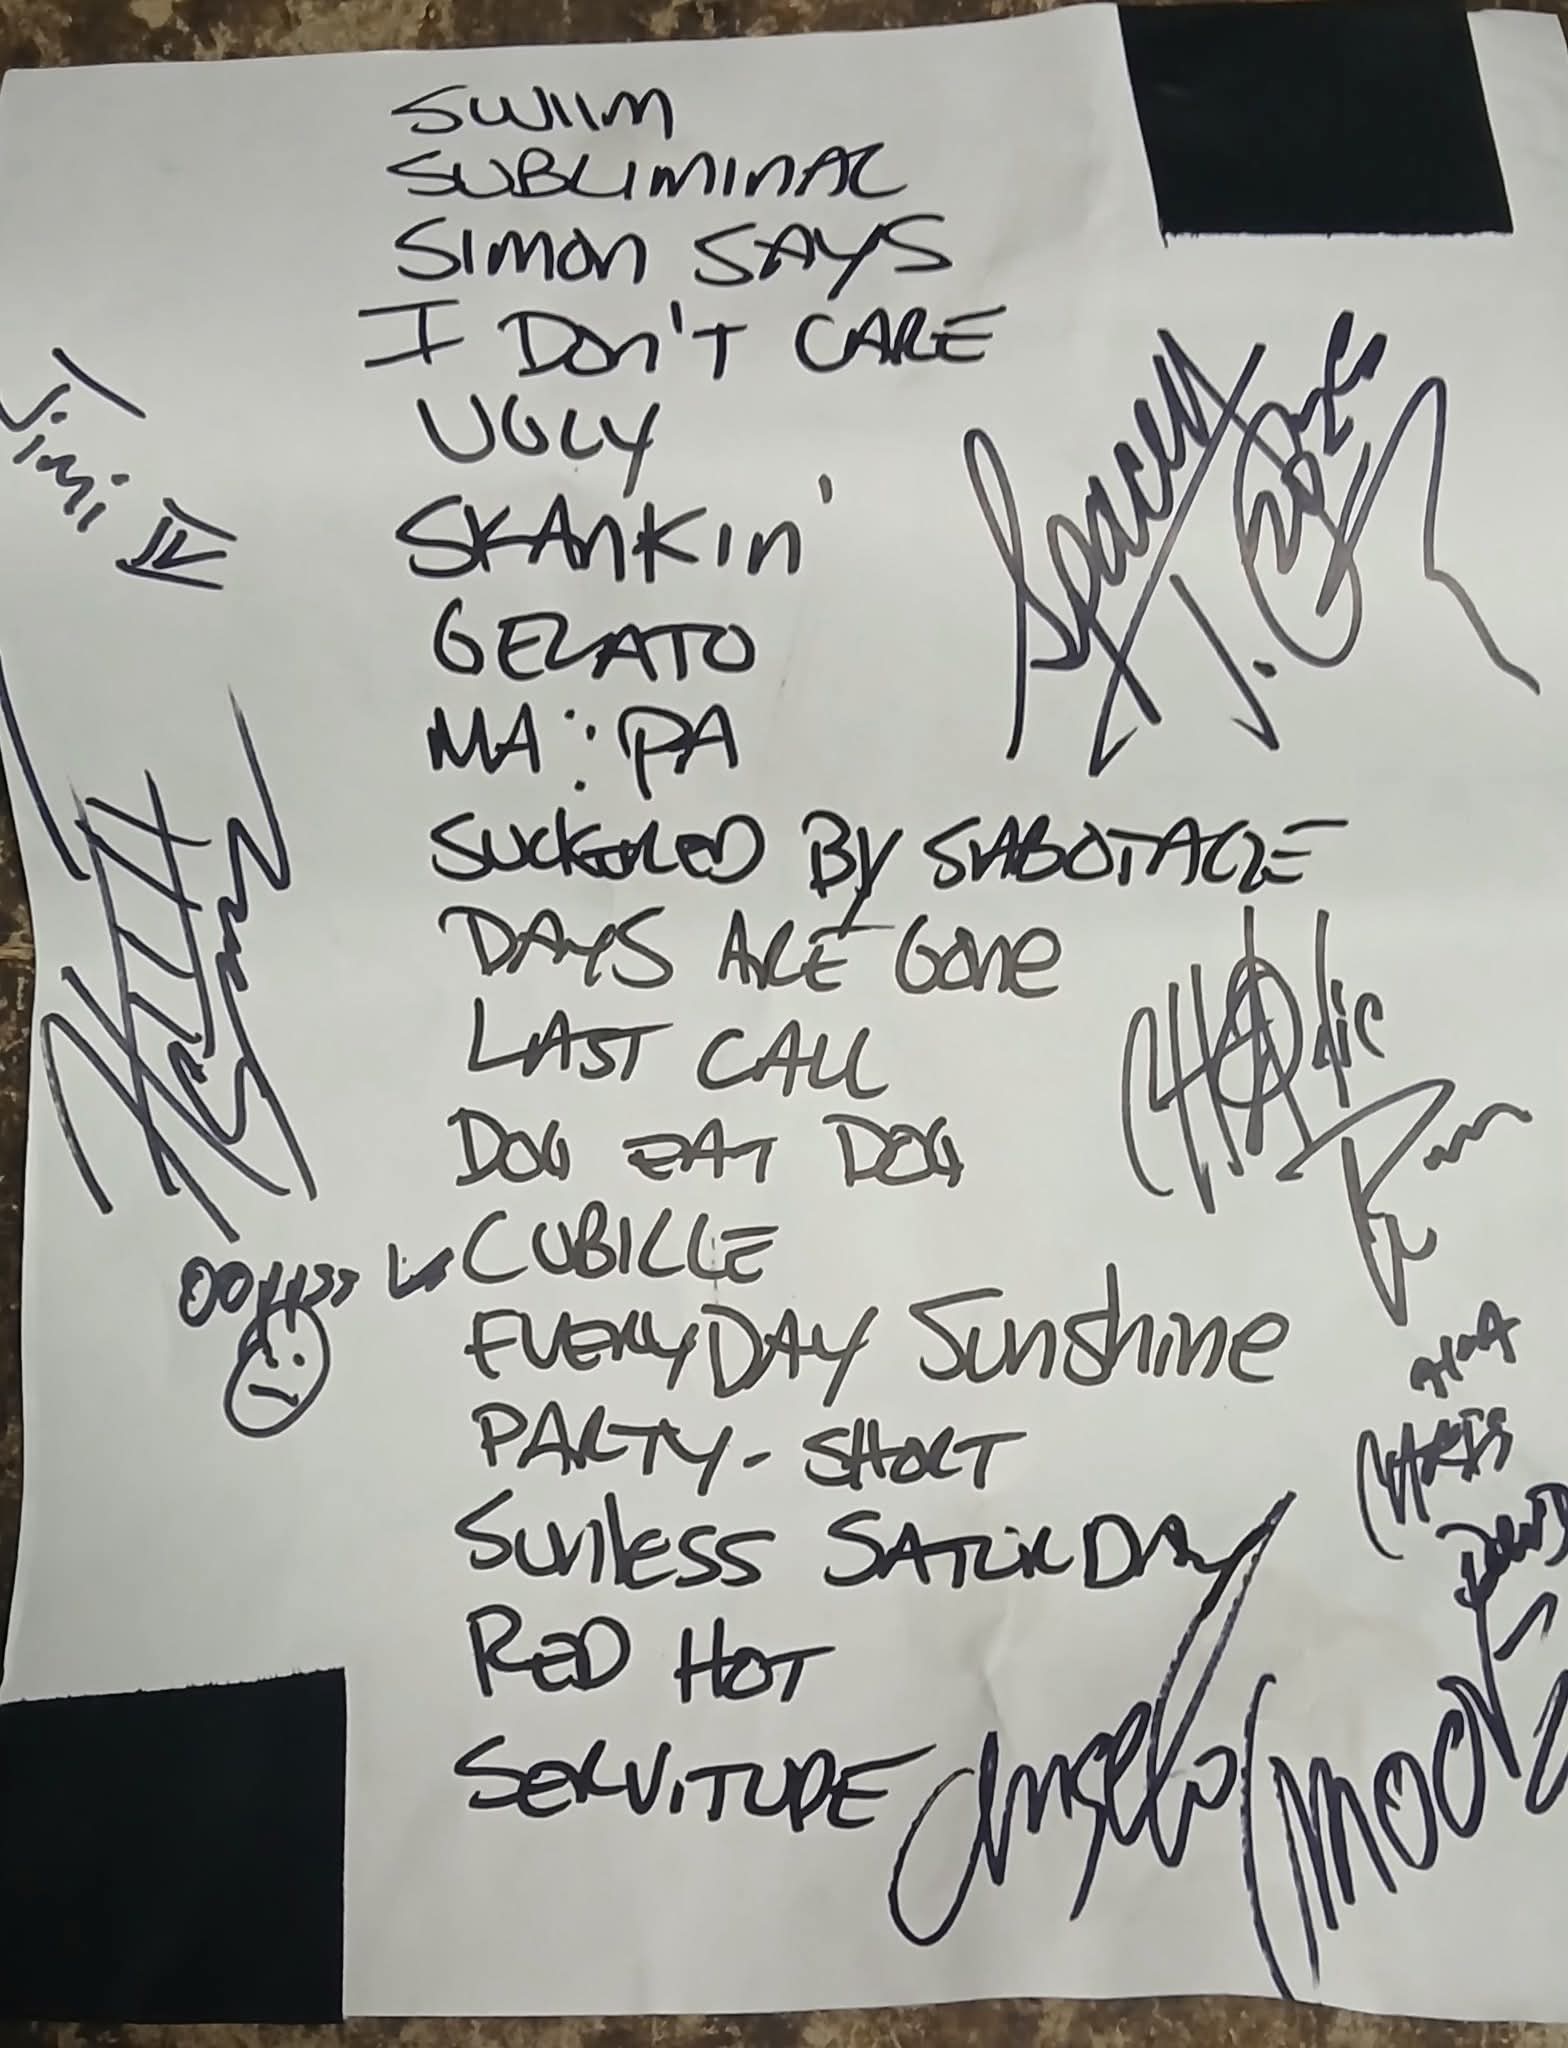 SWIIM
SUBLIMINAL
SIMON SAYS
I DON'T CARE
UGLY
SKANKIN'
GELATO
MA & PA
SUCKERED BY SABOTAGE
DAYS ARE GONE
LAST CALL
DOG EAT DOG
CUBICLE
EVERYDAY Sunshine
PARTY - SHORT
SUNLESS SATURDAY
RED HOT
SERVITUDE
Jimi IV
Spacey T.
CHRIS
DOWD
Angelo Moore